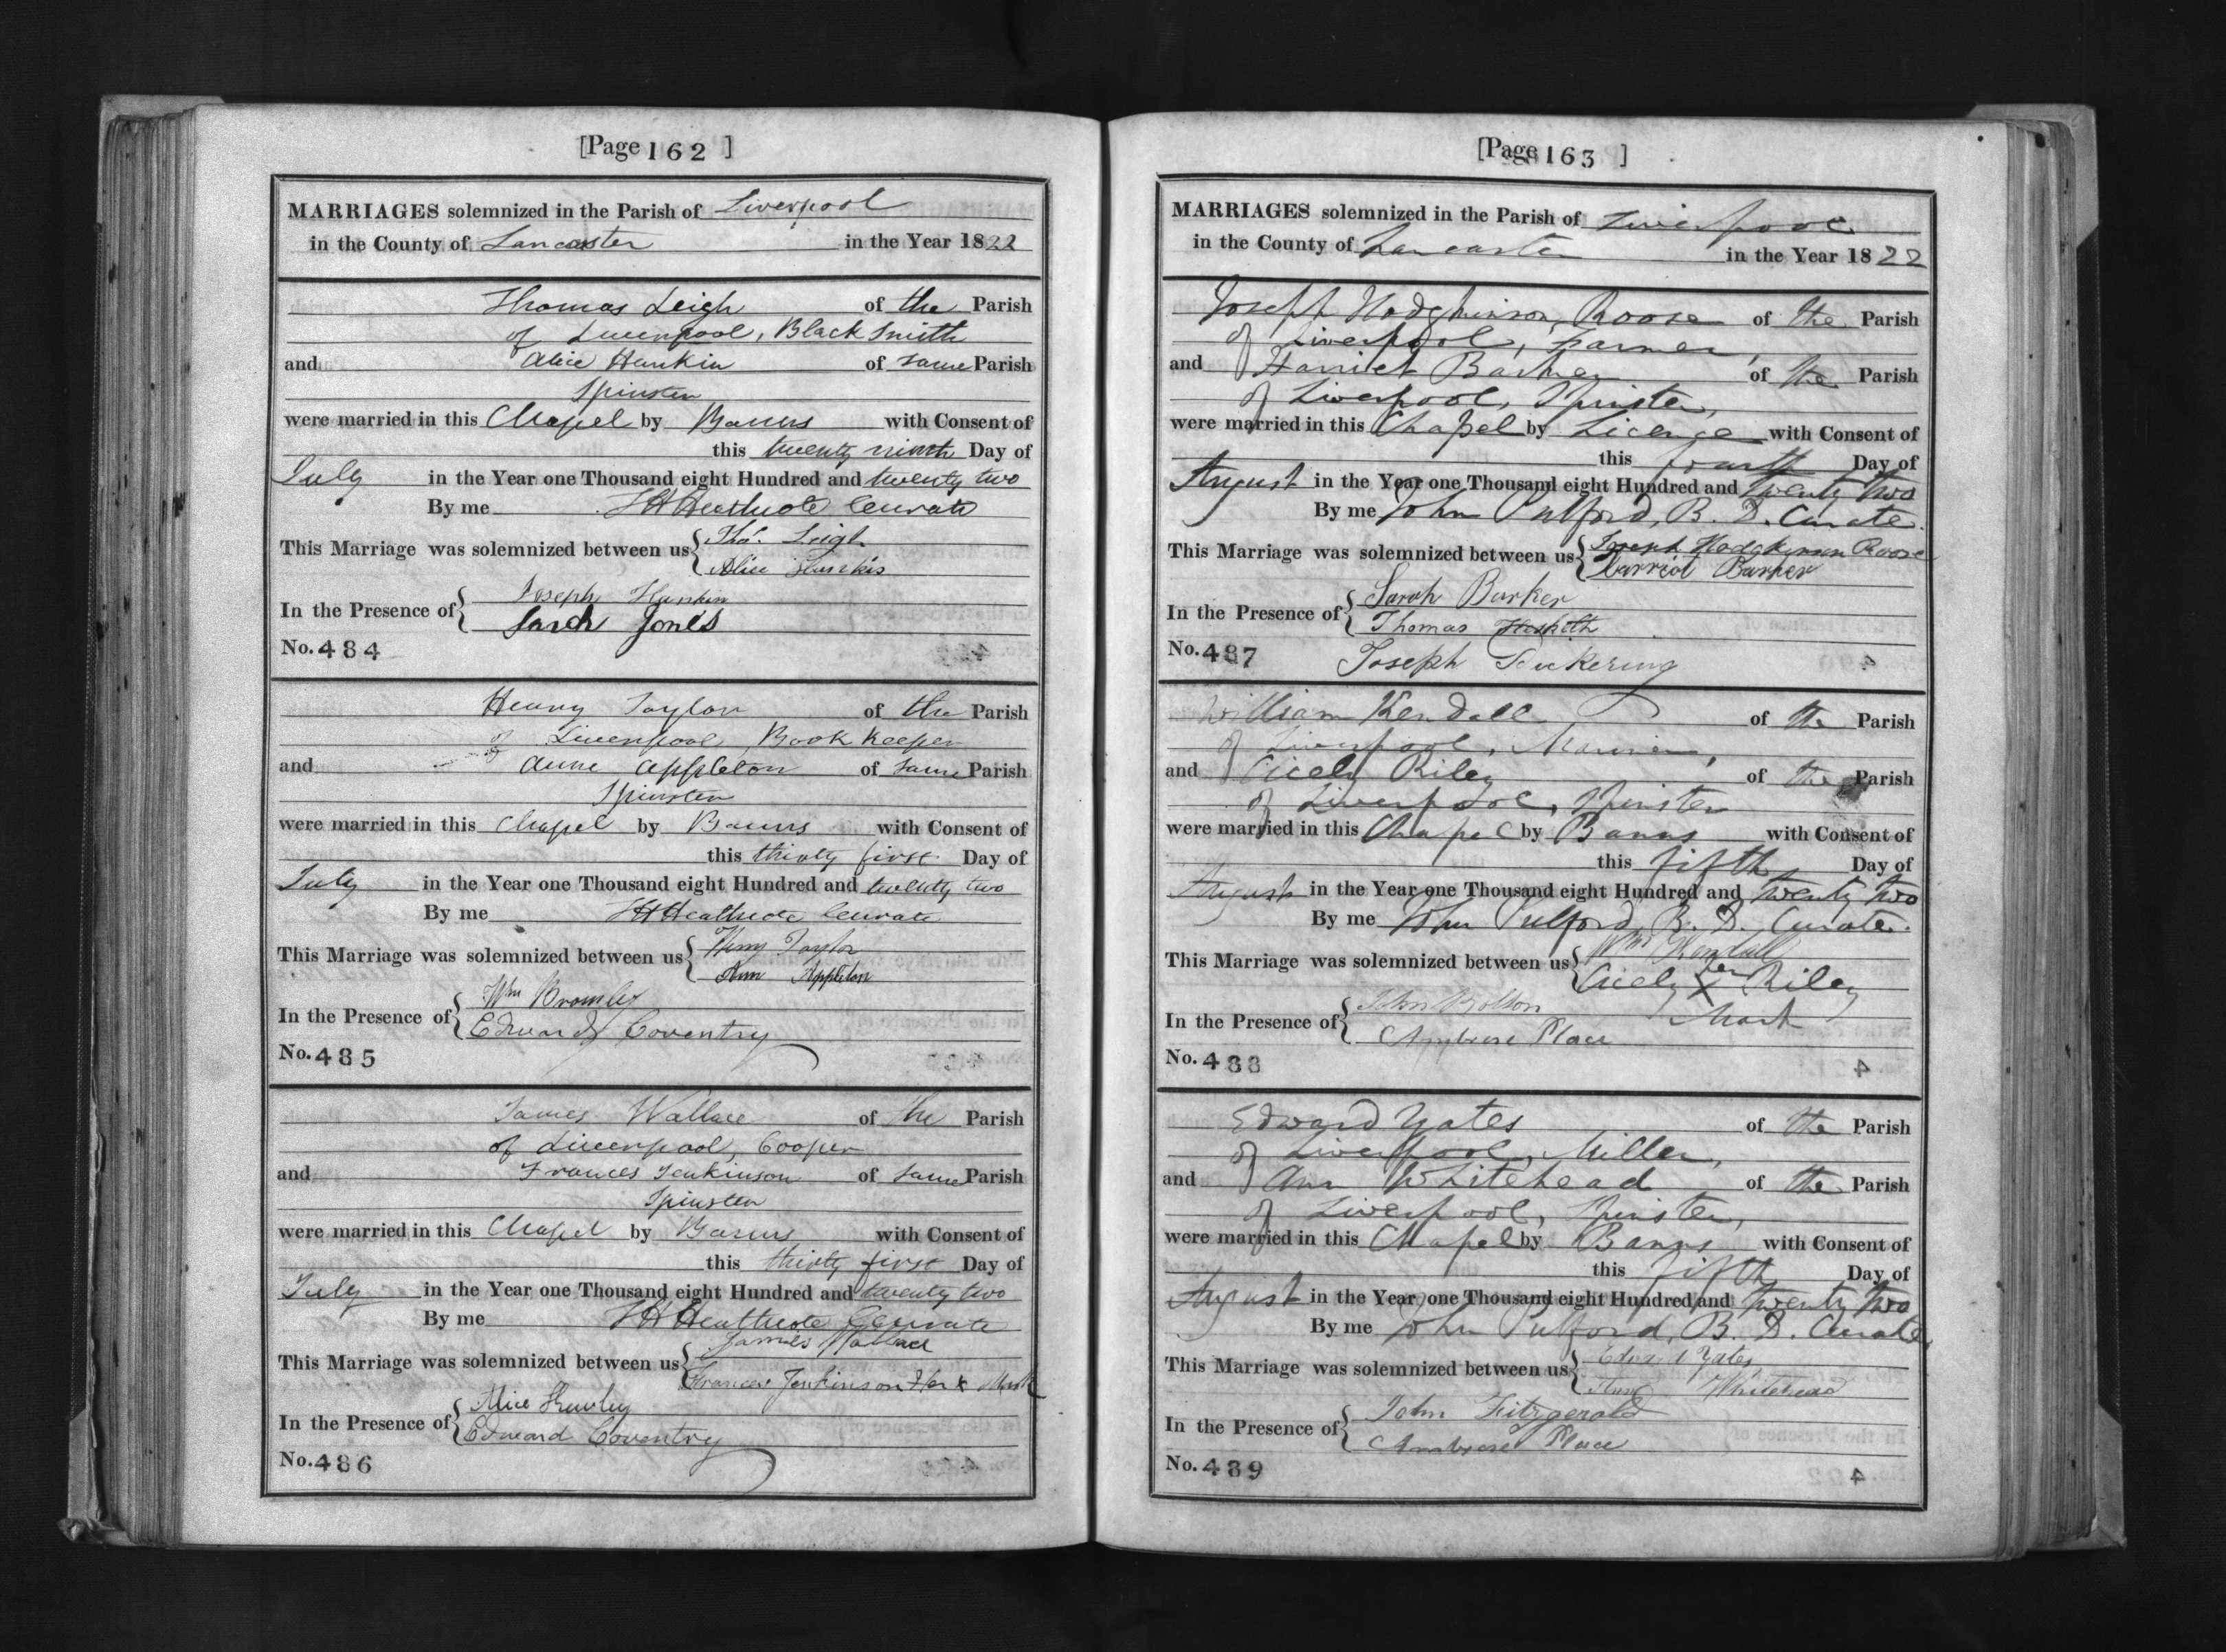 [Page 162 ]
MARRIAGES solemnized in the Parish of Liverpool
in the County of Lancaster in the Year 1822
Thomas Leigh of the Parish
of Liverpool, Black Smith
and Alice Hankin of same Parish
Spinster
were married in this Chapel by Banns with Consent of
this twenty ninth Day of
July in the Year one Thousand eight Hundred and twenty two
By me Heathcote Curate
This Marriage was solemnized between us Thos. Leigh
Alice
In the Presence of Joseph Hankin
Sarah Jones
No. 484
Henry Taylor of the Parish
of Liverpool Book Keeper
and Anne Appleton of same Parish
Spinster
were married in this Chapel by Banns with Consent of
this thirty first Day of
July in the Year one Thousand eight Hundred and twenty two
By me Heathcote Curate
This Marriage was solemnized between us Henry Taylor
Ann Appleton
In the Presence of Wm Bromley
Edward Coventry
No. 485
James Wallace of the Parish
of Liverpool, Cooper
and Frances Jenkinson of same Parish
Spinster
were married in this Chapel by Banns with Consent of
this thirty first Day of
July in the Year one Thousand eight Hundred and twenty two
By me Heathcote Curate
This Marriage was solemnized between us James Wallace
Frances Jenkinson Her x Mark
In the Presence of Alice
Edward Coventry
No. 486
[Page 163 ]
MARRIAGES solemnized in the Parish of Liverpool
in the County of Lancaster in the Year 1822
Joseph Hodgkinson Roose of the Parish
of Liverpool, Farmer,
and Harriet Barker of the Parish
of Liverpool, Spinster,
were married in this Chapel by Licence with Consent of
this fourth Day of
August in the Year one Thousand eight Hundred and twenty two
By me John Pulford, B. D. Curate.
This Marriage was solemnized between us Joseph Hodgkinson Roose
Harriot Barker
In the Presence of Sarah Barker
Thomas Hesketh
No. 487 Joseph Pickering
William Kendall of the Parish
of Liverpool, Mariner,
and Cicely Riley of the Parish
of Liverpool, Spinster
were married in this Chapel by Banns with Consent of
this fifth Day of
August in the Year one Thousand eight Hundred and twenty two
By me John Pulford, B. D. Curate.
This Marriage was solemnized between us Wm Kendall
Cicely X her Riley
In the Presence of John Mark
Ambrose Place
No. 488
Edward Yates of the Parish
of Liverpool, Miller,
and Ann Whitehead of the Parish
of Liverpool, Spinster,
were married in this Chapel by Banns with Consent of
this fifth Day of
August in the Year one Thousand eight Hundred and twenty two
By me John Pulford, B. D. Curate,
This Marriage was solemnized between us Edward Yates
Ann Whitehead
In the Presence of John Fitzgerald
Ambrose Place
No. 489